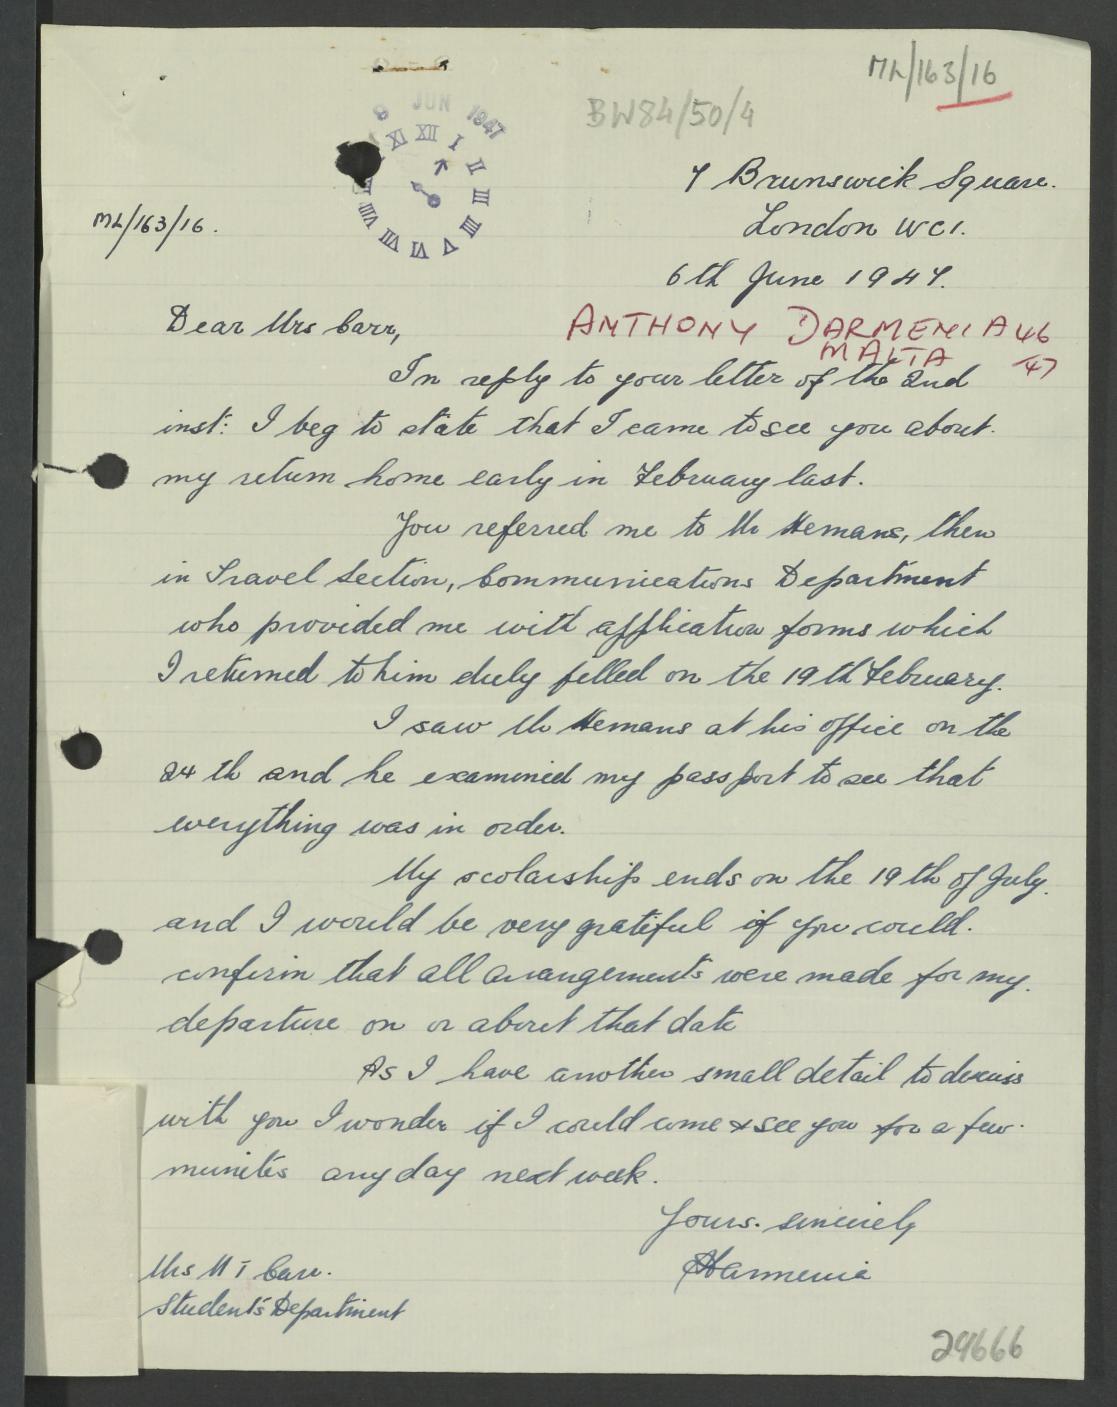 ML/163/16
BW84/50/4
JUN 1947
XII I II III IIII V VI VII VIII XI
7 Brunswick Square.
ML/163/16.
London WC1.
6th June 1947.
Dear Mrs Carr,
ANTHONY DARMENIA 46
MALTA 47
In reply to your letter of the 2nd
inst: I beg to state that I came to see you about
my return home early in February last.
You referred me to Mr Hemans, then
in Travel Section, Communications Department
who provided me with application forms which
I returned to him duly filled on the 19th February.
I saw Mr Hemans at his office on the
24th and he examined my passport to see that
everything was in order.
My scolarship ends on the 19th of July
and I would be very grateful if you could
confirm that all arrangements were made for my
departure on or about that date
As I have another small detail to discuss
with you I wonder if I could come & see you for a few
minutes any day next week.
Yours sincerely
Darmenia
Mrs M T Carr.
Students Department
29666